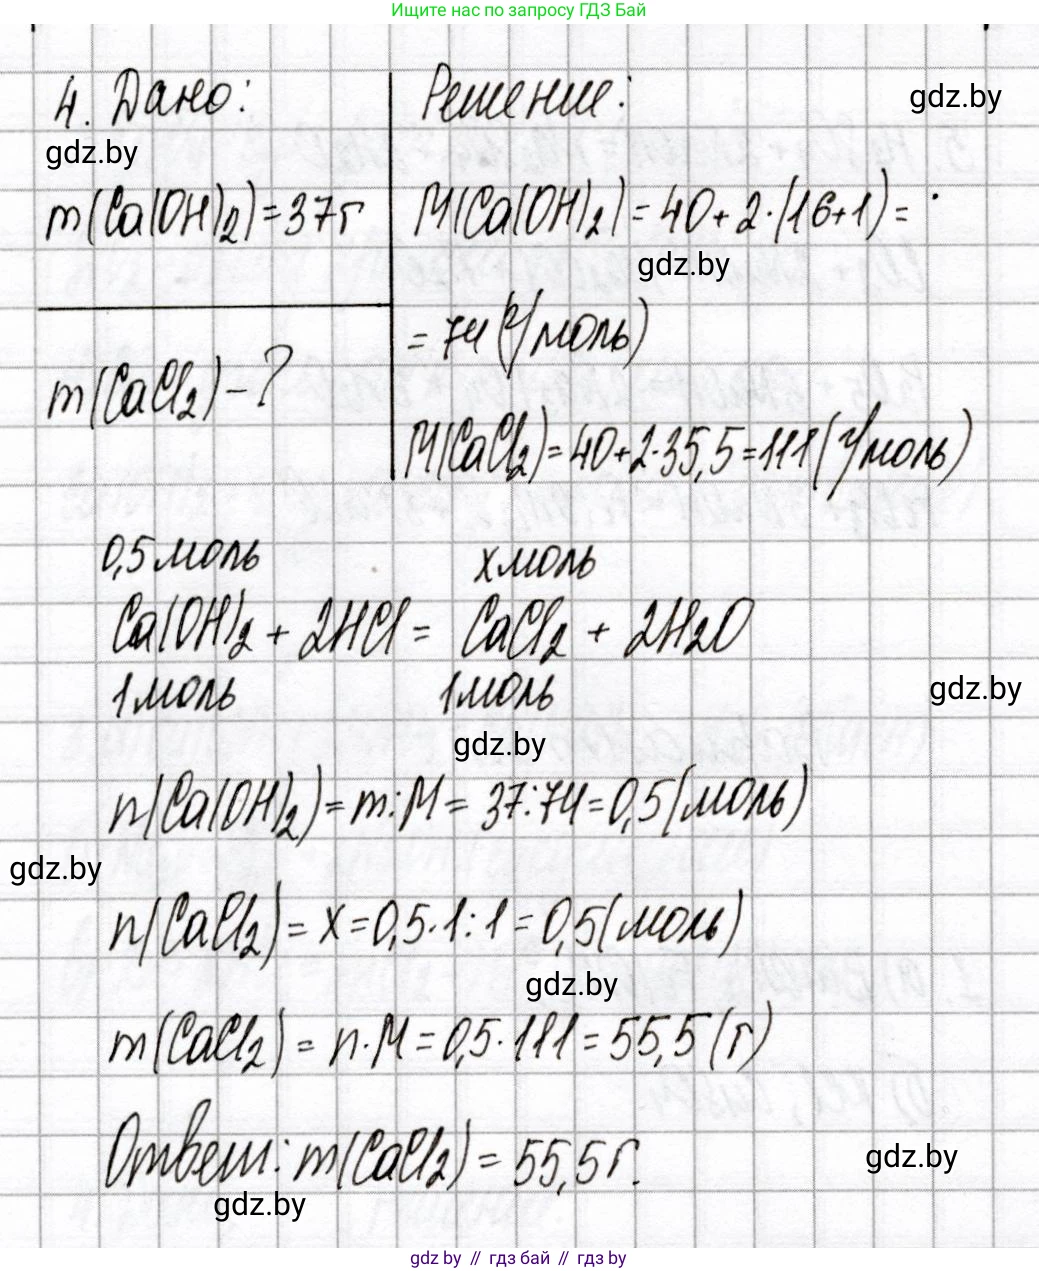 Ищите нас по запросу ГДЗ Бай
4. Дано:
Решение:
gdz.by
gdz.by
m(Ca(OH)2)=37г
M(Ca(OH)2)=40+2·(16+1)=
gdz.by
=74(г/моль)
m(CaCl2)-?
M(CaCl2)=40+2·35,5=111(г/моль)
0,5моль xмоль
Ca(OH)2 + 2HCl = CaCl2 + 2H2O
1моль 1моль
gdz.by
gdz.by
n(Ca(OH)2)=m:M=37:74=0,5(моль)
gdz.by
n(CaCl2)=x=0,5·1:1=0,5(моль)
gdz.by
m(CaCl2)=n·M=0,5·111=55,5(г)
Ответ: m(CaCl2)=55,5г.
gdz.by
gdz.by
gdz.by // гдз бай // gdz.by